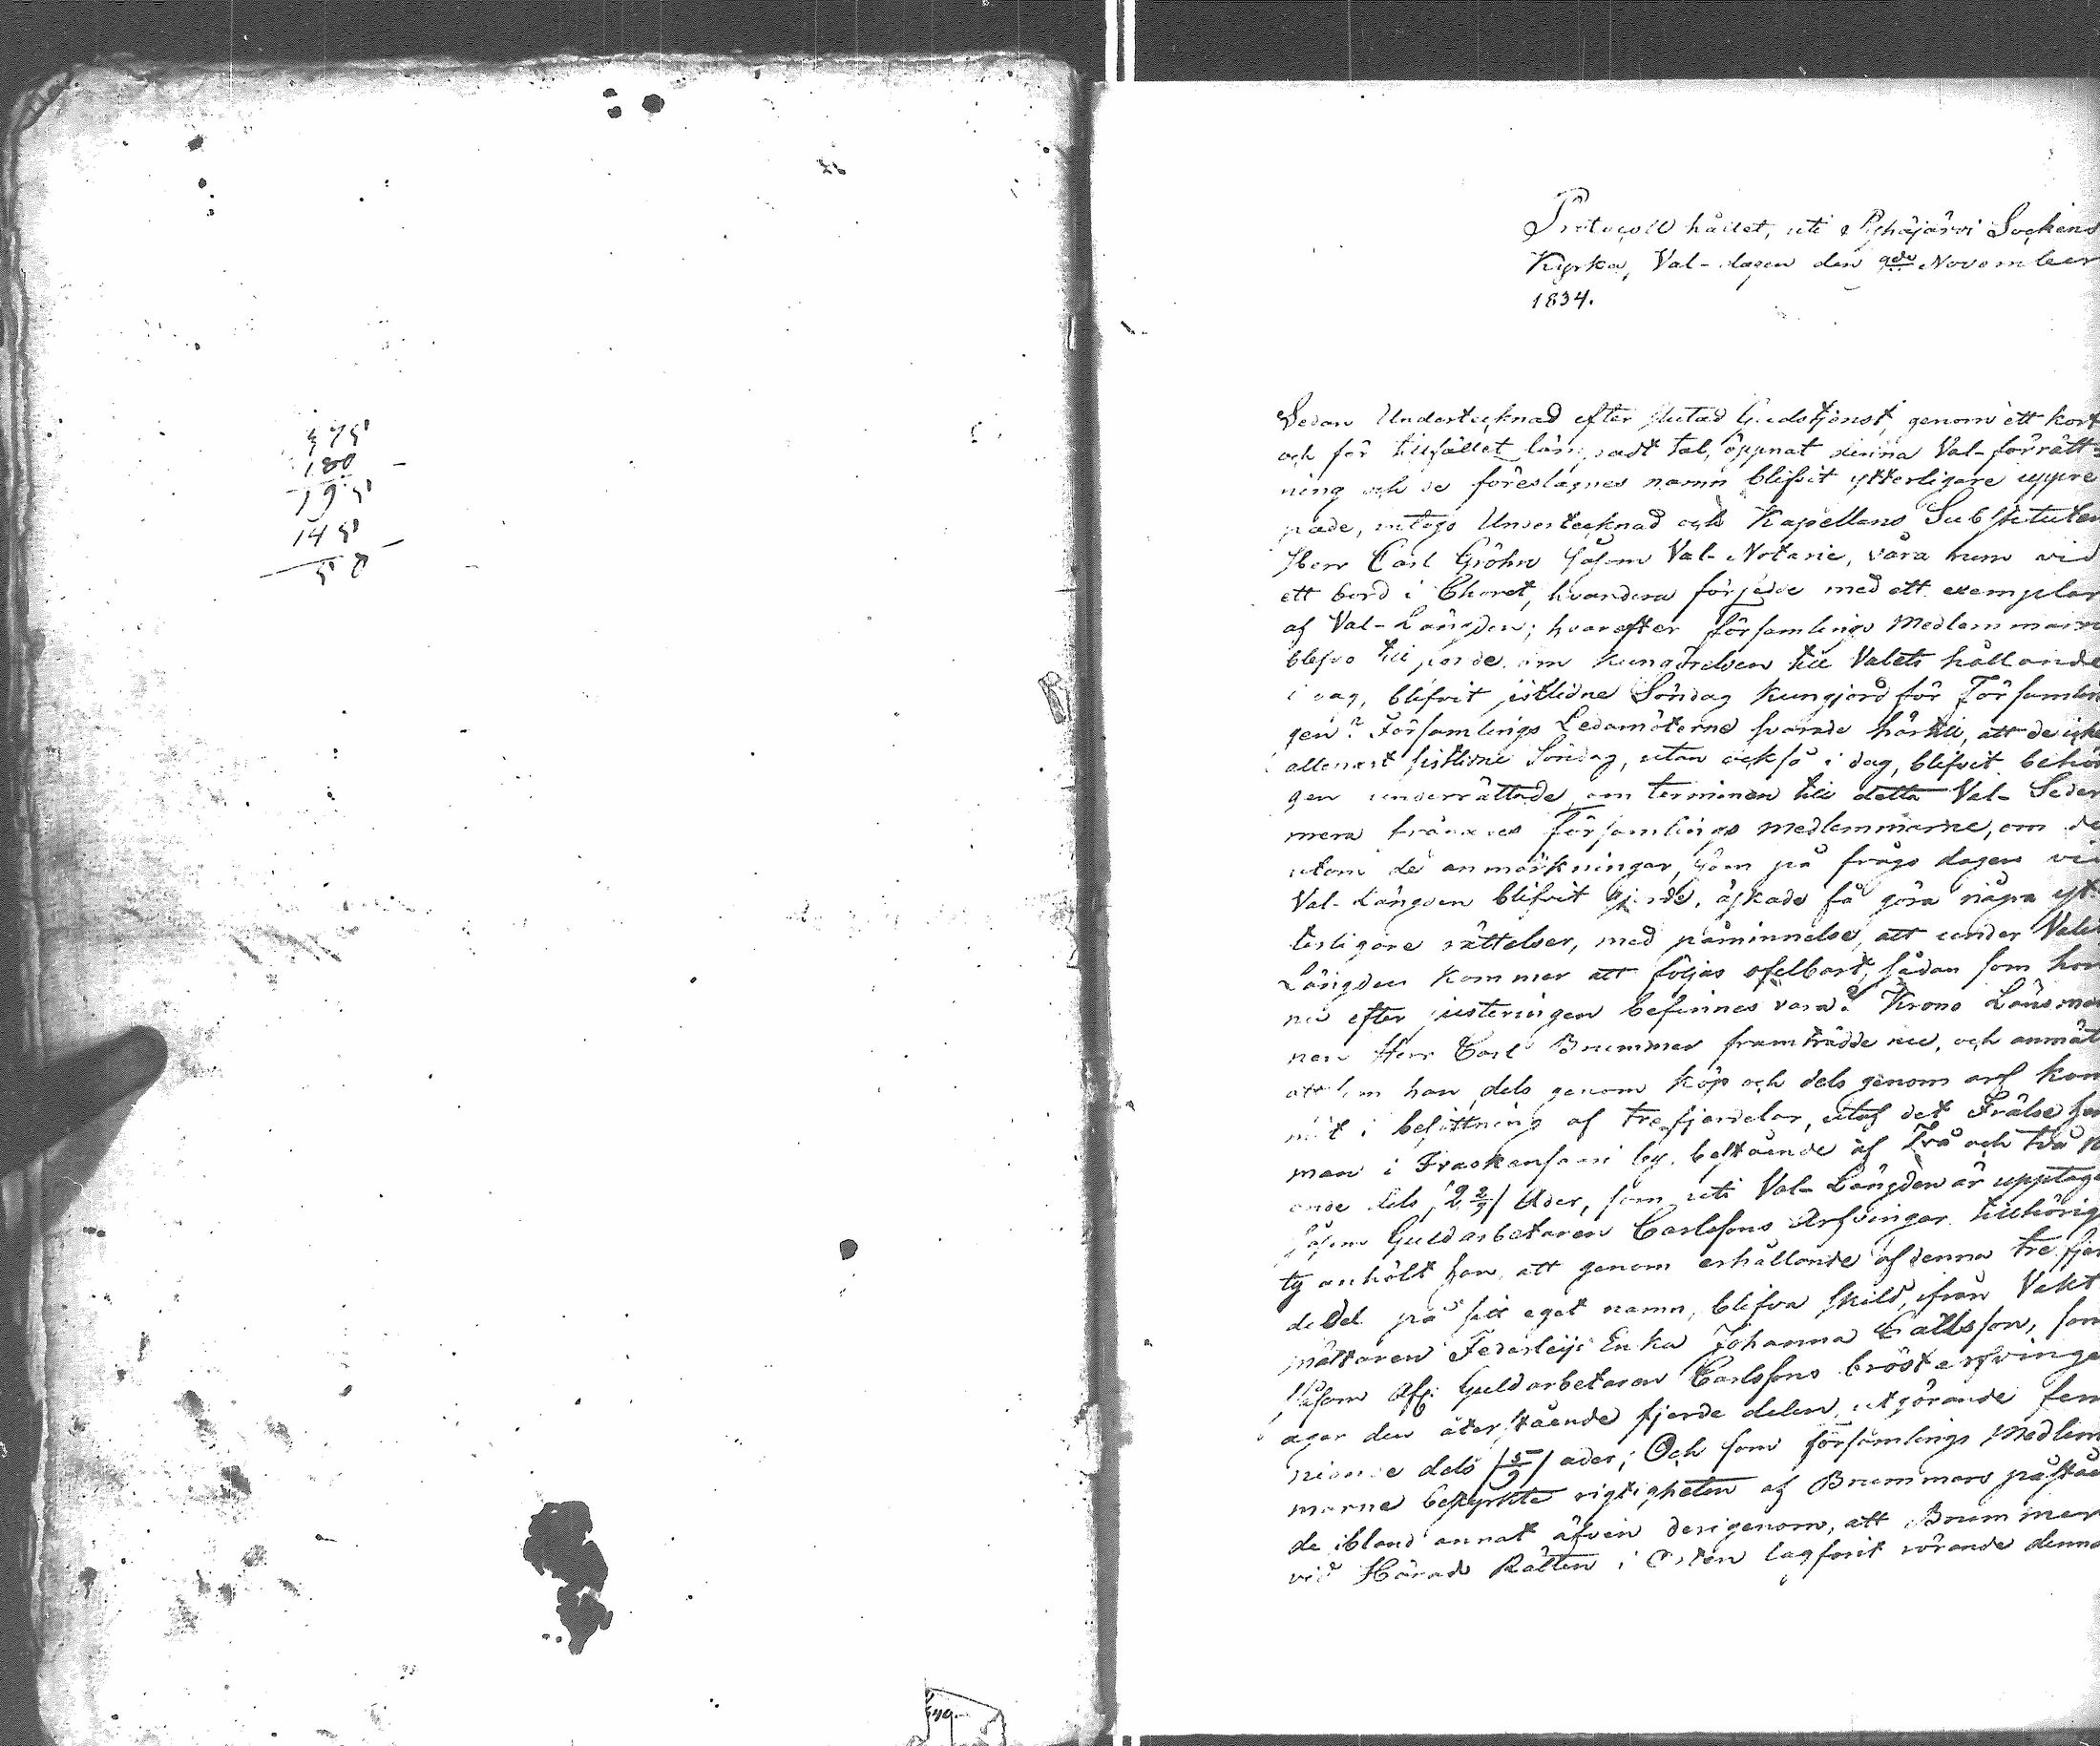 375
180
195
145
50
Protocoll hållet, uti Pyhäjärvi Sockens
Kyrka, Val-dagen den 9de November
1834.
Sedan Undertecknad efter slutad Gudstjenst, genom ett kort
och för tillfället lämpadt tal, öppnat denna Val-förrätt-
ning och de föreslagnes namn blifvit ytterligare uppre
pade, intogo Undertecknad och Kapellans Substituten
Herr Carl Gröhn såsom Val-Notarie, våra rum vid
ett bord i Choret, hvardera försedde med ett exemplar
af Val-Längden; hvarefter församlings Medlemmarne
blefvo tillsporde om kungörelsen till Valets hållande
i dag, blifvit sistledne Söndag kungjord för Församlin
gen? Församlings Ledamöterne svarade härtill, att de icke
allenast sistledne Söndag, utan också i dag, blifvit behöri
gen underrättade om terminen till detta Val- Seder
mera frågades församlings medlemmarne, om de
utom de anmärkningar, som på frågo dagen vid
Val-Längden blifvit gjorde, äskade få göra några yt-
terligare rättelser, med påminnelse, att under Valet
Längden kommer att följas ofelbart, sådan som hon
nu efter justeringen befinnes vara? Krono Länsman
nen Herr Carl Brummer framträdde nu, och anmält
att som han dels genom köp och dels genom arf kom
mit i besittning af trefjerdelar, utaf det Frälse he
man i Fraskansaari by, bestående af Två och två ni
onde dels /2 2/9/ Ader, som uti Val-Längden är upptage
såsom Guldarbetaren Carlsons Arfvingar tillhörigt
ty anhölt han, att genom erhållande af denna tre fjer
dedel på sitt eget namn, blifva skild ifrån Vakt
mästaren Federleijs Enka Johanna Carlsson, som
såsom Afl: Guldarbetaren Carlsons bröst arfvinge
äger den återstående fjerde delen, utgörande fem
nionde dels /5/9/ ader; Och som församlings Medlem
marne bestyrkte rigtigheten af Brummers påståen
de ibland annat äfven derigenom, att Brummer
vid Härads Rätten i Orten lagfarit rörande denna